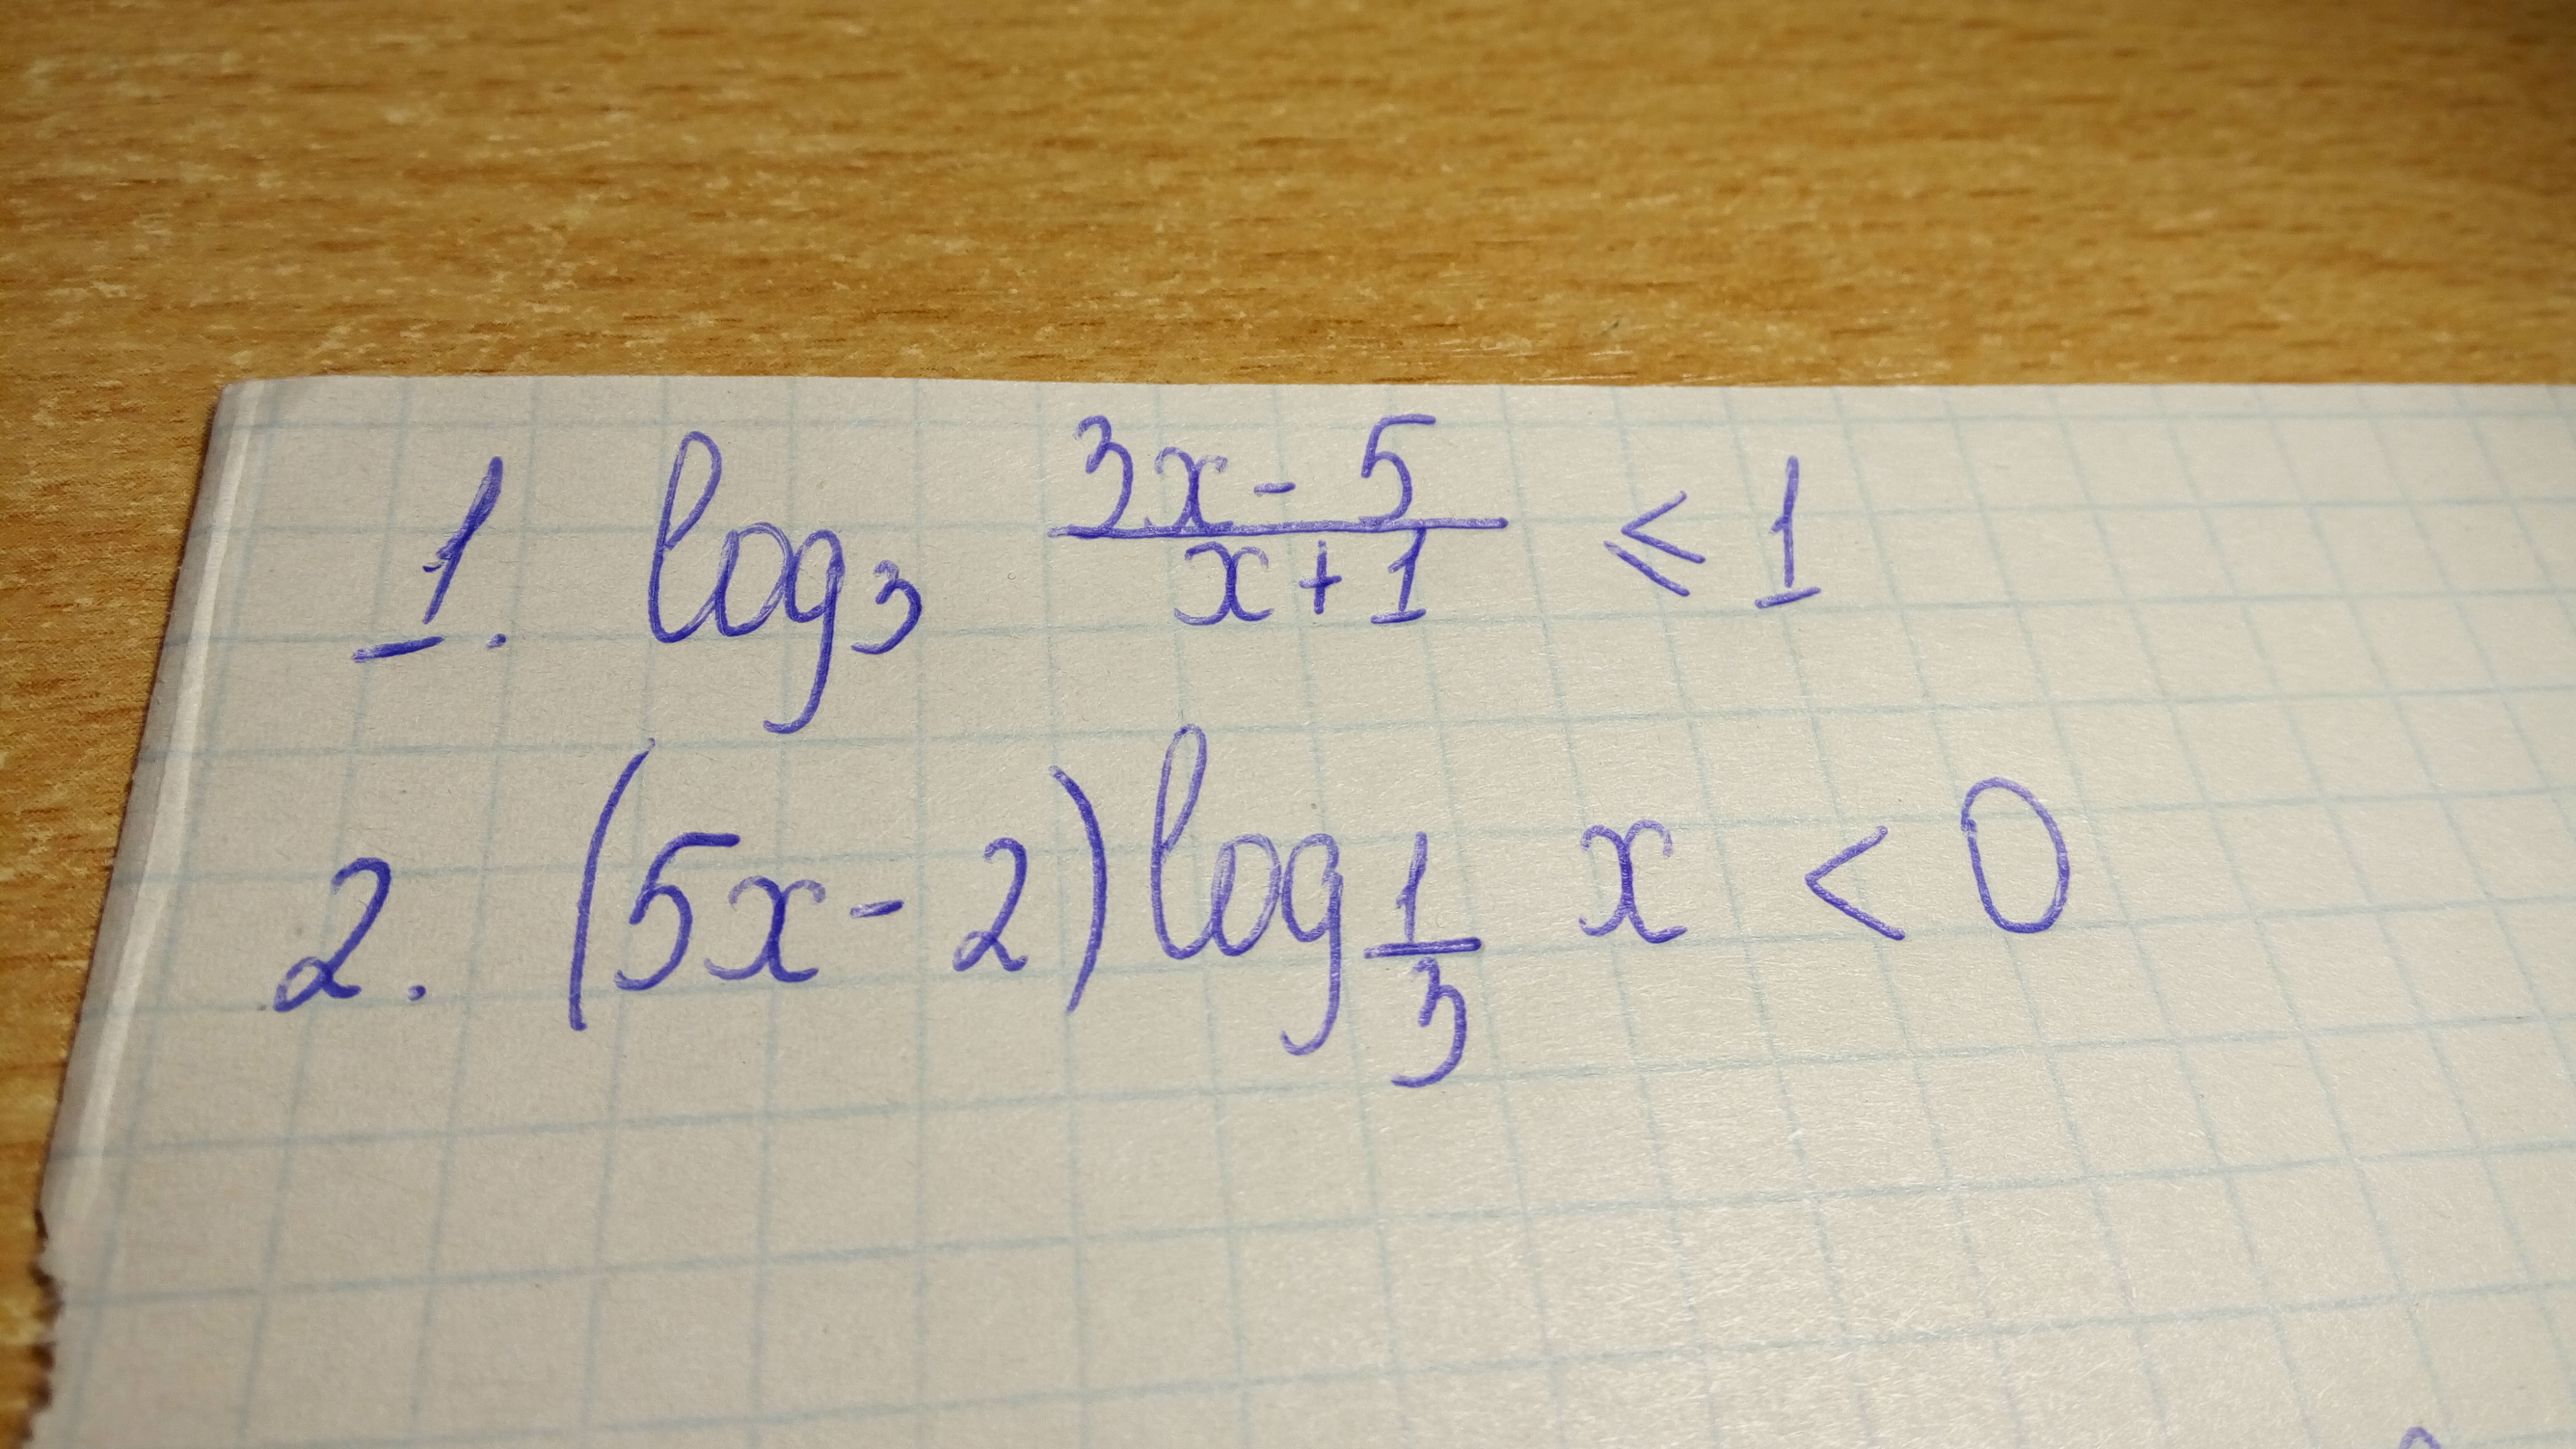 1. log₃ (3x - 5)/(x + 1) ⩽ 1
2. (5x - 2) log_(1/3) x < 0